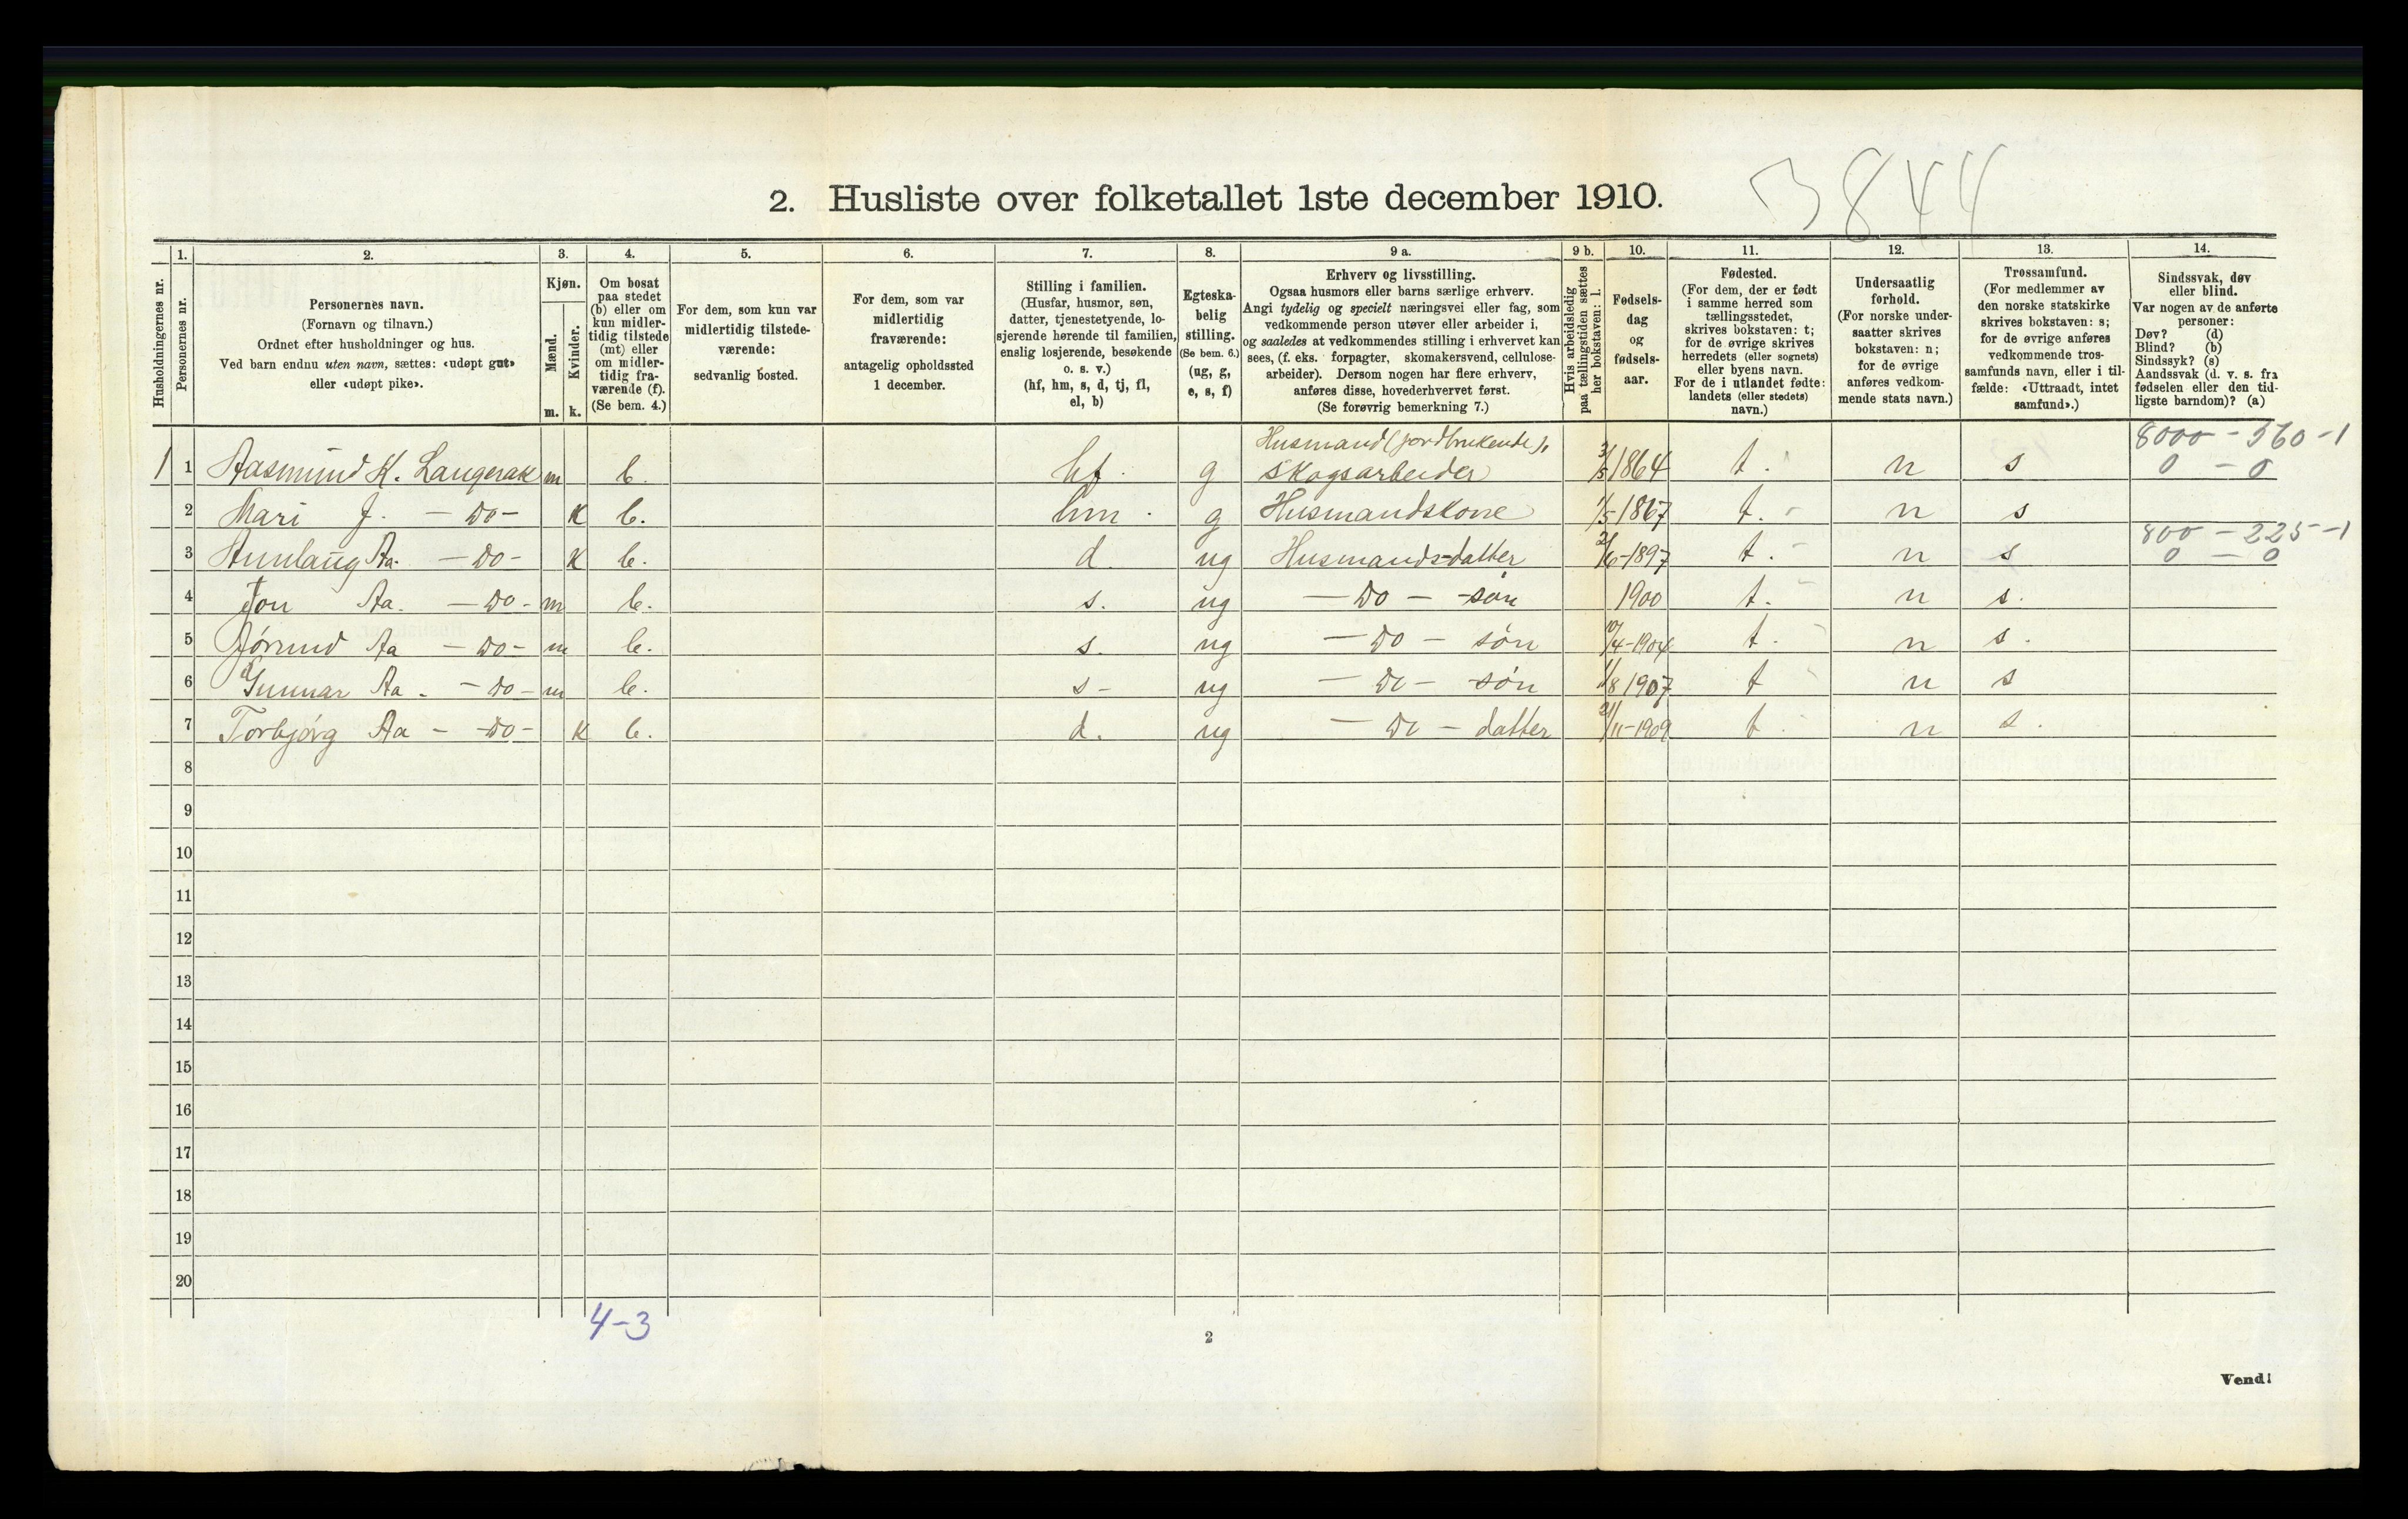 3844
2. Husliste over folketallet 1ste december 1910.
Husholdningernes nr.
1.
Personernes nr.
2.
Personernes navn.
(Fornavn og tilnavn.)
Ordnet efter husholdninger og hus.
Ved barn endnu uten navn, sættes: «udøpt gut»
eller «udøpt pike».
3.
Kjøn.
Mænd.
Kvinder.
m. k.
4.
Om bosat
paa stedet
(b) eller om
kun midler-
tidig tilstede
(mt) eller
om midler-
tidig fra-
værende (f).
(Se bem. 4.)
5.
For dem, som kun var
midlertidig tilstede-
værende:
sedvanlig bosted.
6.
For dem, som var
midlertidig
fraværende:
antagelig opholdssted
1 december.
7.
Stilling i familien.
(Husfar, husmor, søn,
datter, tjenestetyende, lo-
sjerende hørende til familien,
enslig losjerende, besøkende
o. s. v.)
(hf, hm, s, d, tj, fl,
el, b)
8.
Egteska-
belig
stilling.
(Se bem. 6.)
(ug, g,
e, s, f)
9 a.
Erhverv og livsstilling.
Ogsaa husmors eller barns særlige erhverv.
Angi tydelig og specielt næringsvei eller fag, som
vedkommende person utøver eller arbeider i,
og saaledes at vedkommendes stilling i erhvervet kan
sees, (f. eks. forpagter, skomakersvend, cellulose-
arbeider). Dersom nogen har flere erhverv,
anføres disse, hovederhvervet først.
(Se forøvrig bemerkning 7.)
9 b.
Hvis arbeidsledig
paa tællingstiden sættes
her bokstaven: l.
10.
Fødsels-
dag
og
fødsels-
aar.
11.
Fødested.
(For dem, der er født
i samme herred som
tællingsstedet,
skrives bokstaven: t;
for de øvrige skrives
herredets (eller sognets)
eller byens navn.
For de i utlandet fødte:
landets (eller stedets)
navn.)
12.
Undersaatlig
forhold.
(For norske under-
saatter skrives
bokstaven: n;
for de øvrige
anføres vedkom-
mende stats navn.)
13.
Trossamfund.
(For medlemmer av
den norske statskirke
skrives bokstaven: s;
for de øvrige anføres
vedkommende tros-
samfunds navn, eller i til-
fælde: «Uttraadt, intet
samfund».)
14.
Sindssvak, døv
eller blind.
Var nogen av de anførte
personer:
Døv? (d)
Blind? (b)
Sindssyk? (s)
Aandssvak (d. v. s. fra
fødselen eller den tid-
ligste barndom)? (a)
Husmand (jordbrukende), 8000 - 560 - 1
1 1 Aasmund K. Langerak m b. hf. g skogsarbeider 3/5 1864 t. n s 0 - 0
2 Mari J. - Do - k b. hm. g Husmandskone 1/5 1867 t. n s
800 - 225 - 1
3 Aunlaug Aa. - Do - k b. d. ug Husmandsdatter 2/6-1897 t. n s 0 - 0
4 Jon Aa. - Do - m b. s. ug - Do - søn 1900 t. n s.
5 Jørund Aa - Do - m b. s. ug - Do - søn 10/4-1904 t. n s.
6 Gunnar Aa. - Do - m b. s - ug - Do - søn 1/8 1907 t n s
7 Torbjørg Aa - Do - k b. d. ug - Do - datter 21/11-1909 t. n s.
8
9
10
11
12
13
14
15
16
17
18
19
20
4-3
2
Vend!